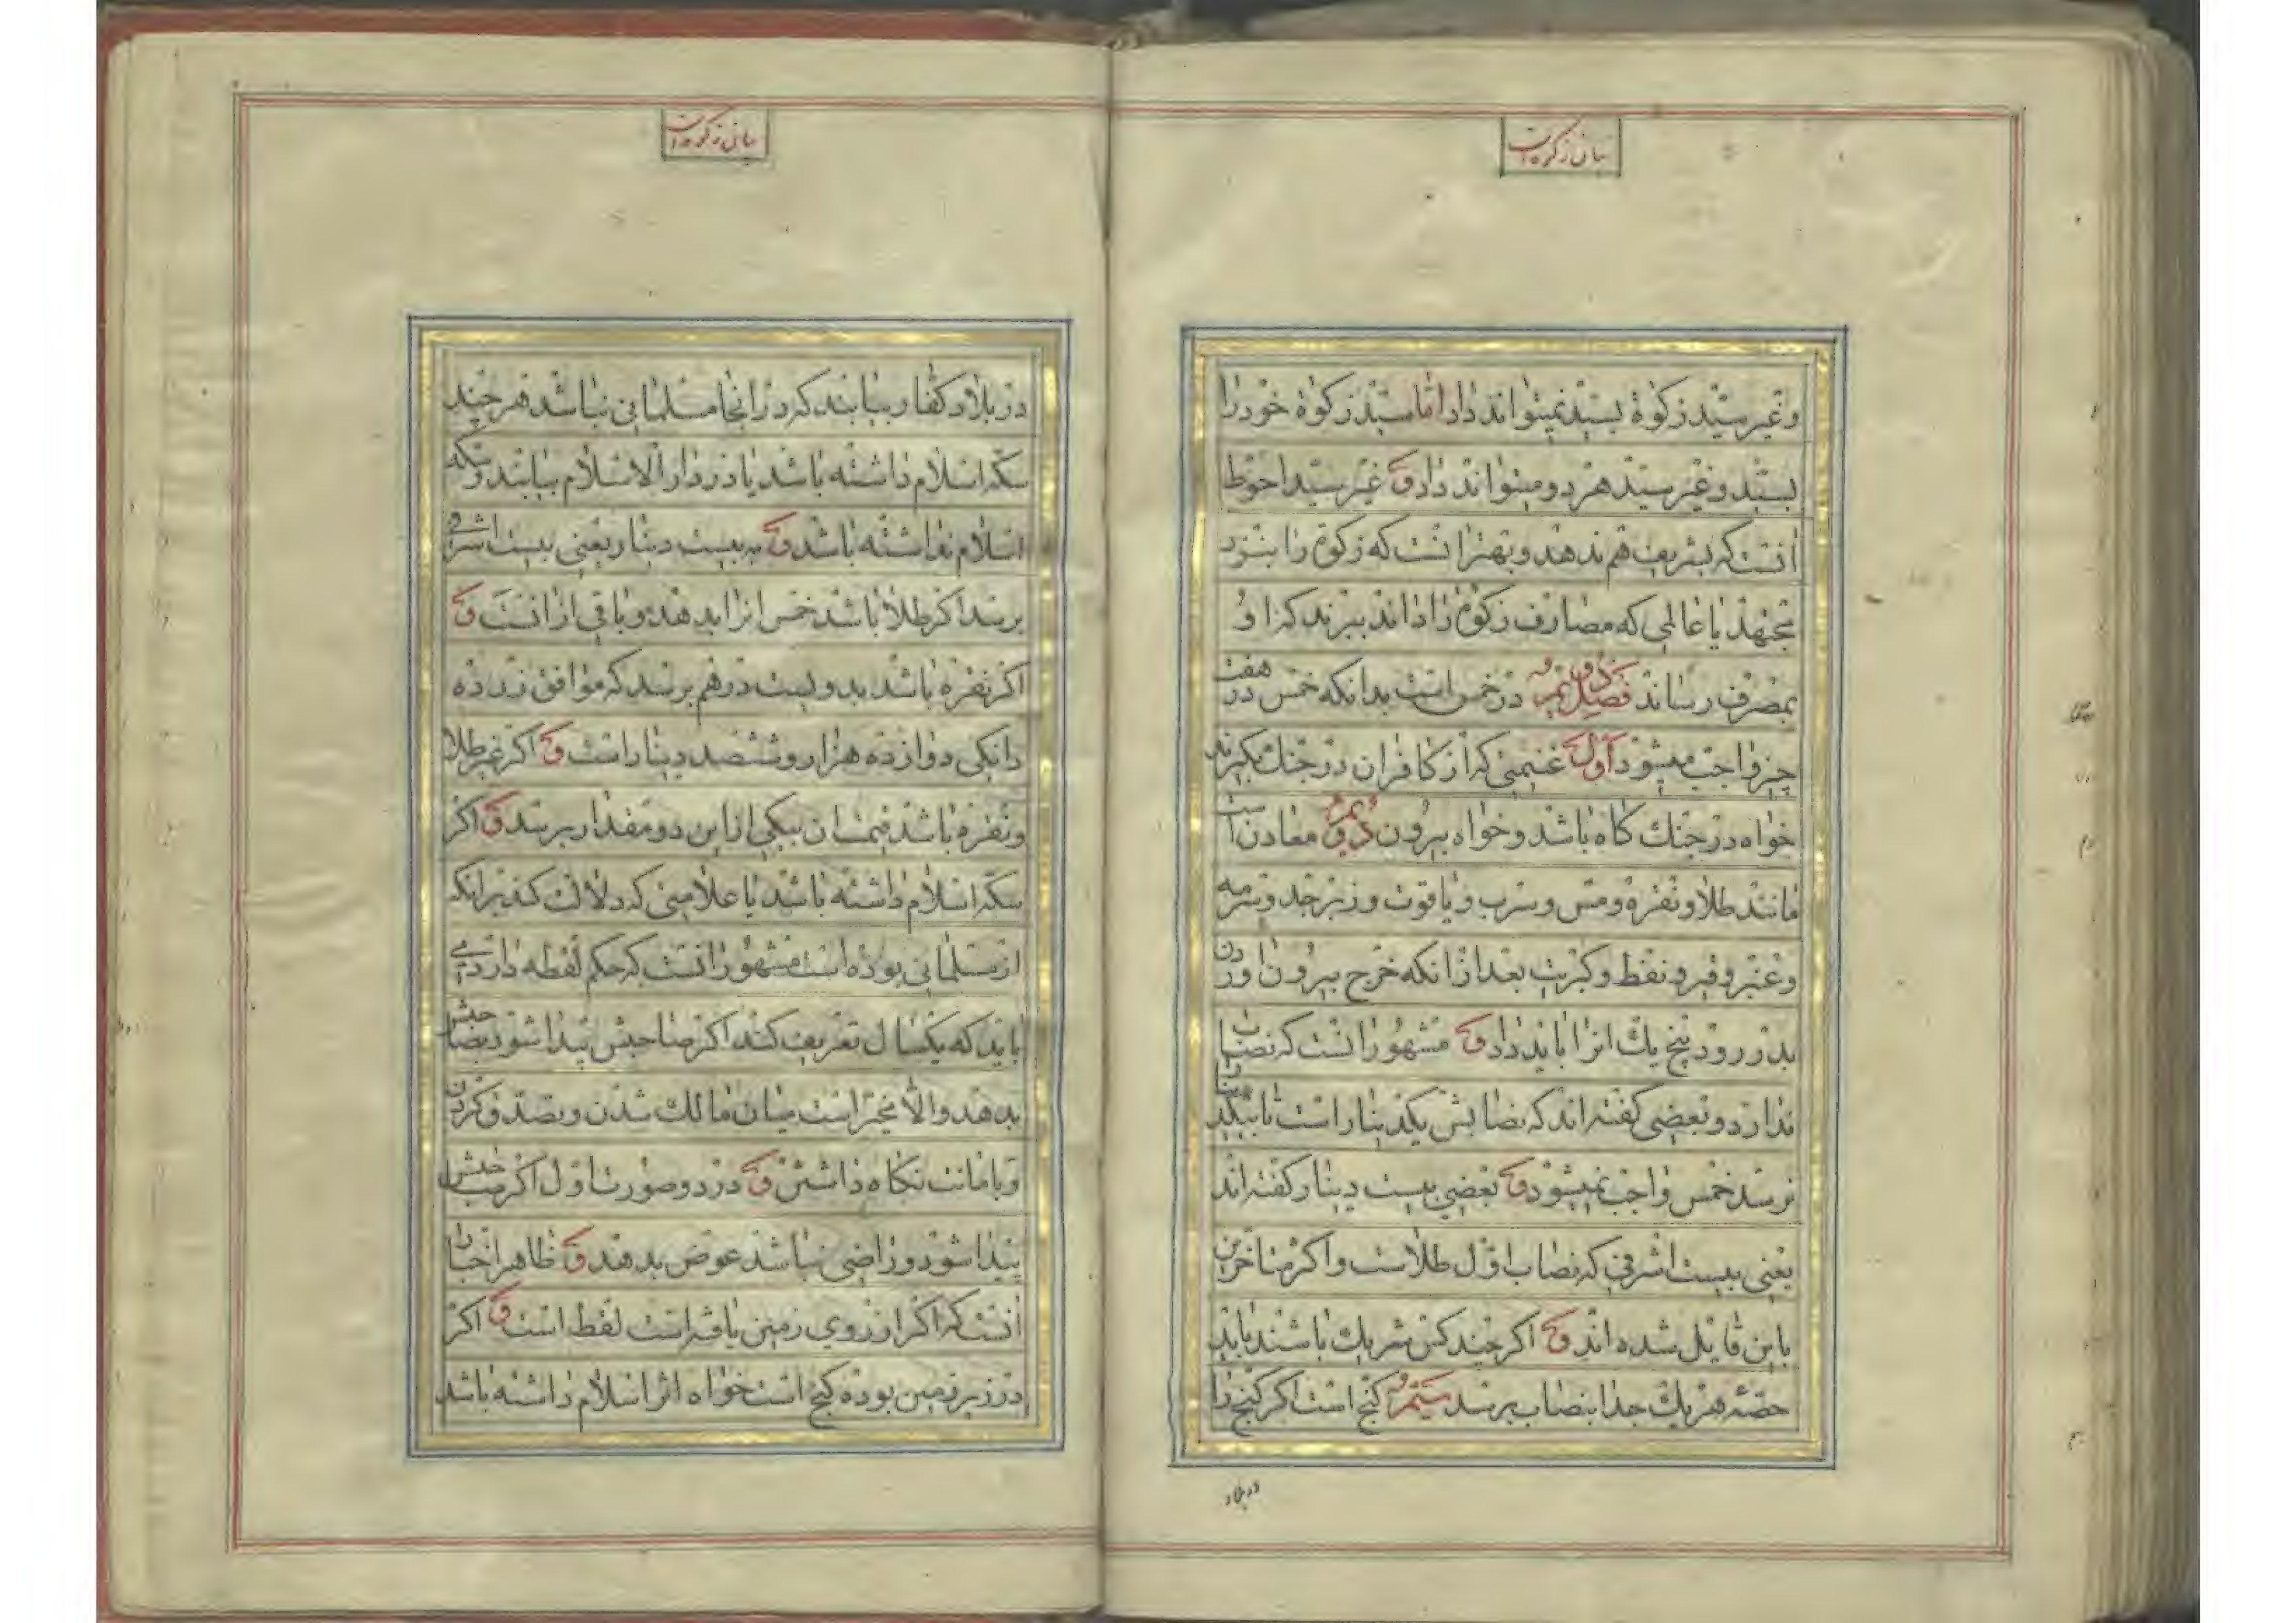 بیان زکوة است
وغیر سیّد زکوة بسیّد نمیتواند داد امّا سیّد زکوة خود را
بسیّد وغیر سیّد هر دو میتواند داد ق غیر سیّد احوط
آنست که بشریف هم ندهد وبهتر آنست که زکوة را بنزد
مجتهد یا عالمی که مصارف زکوة را داند ببرند که او
بمصرف رساند فصل دویم در خمس است بدانکه خمس در هفت
چیز واجب میشود اول غنیمتی که از کافران در جنك بکیرند
خواه در جنك کاه باشد وخواه بیرون دویم معادن است
مانند طلا ونقره ومس وسرب ویاقوت وزبرجد وسرمه
وعنبر وقیر ونفط وکبریت بعد از آنکه خرج بیرون آوردن
بدر رود پنج یك آنرا باید داد ق مشهور آنست که نصاب
ندارد وبعضی کفته اند که نصابش یکدینار است تا بیکدینار
نرسد خمس واجب نمیشود ق بعضی بیست دینار کفته اند
یعنی بیست اشرفی که نصاب اول طلاست واکثر متاخرین
باین قایل شده اند ق اکر چند کس شریك باشند باید
حصّه هر یك جدا بنصاب برسد سیّم کنج است اکر کنج را
در بلاد
بیان زکوة است
در بلاد کفار بیابند که در آنجا مسلمانی نباشد هر چند
سکّه اسلام داشته باشد یا در دار الاسلام بیابند وسکّه
اسلام نداشته باشد ق به بیست دینار یعنی بیست اشرفی
برسد اکر طلا باشد خمس آنرا بدهد وباقی از آنست ق
اکر نقره باشد بدویست درهم برسد که موافق زر ده
دانکی دوازده هزار وششصد دینار است ق اکر غیر طلا
ونقره باشد قیمت آن بیکی از این دو مقدار برسد ق اکر
سکّه اسلام داشته باشد یا علامتی که دلالت کند بر آنکه
از مسلمانی بوده است مشهور آنست که حکم لقطه دارد
باید که یکسال تعریف کند اکر صاحبش پیدا شود بصاحبش
بدهد والّا مخیّر است میان مالك شدن وتصدّق کردن
وبامانت نکاه داشتن ق در دو صورت اول اکر صاحبش
پیدا شود وراضی نباشد عوض بدهد ق ظاهر اخبار
آنست که اکر از روی زمین یافته است لقط است ق اکر
در زیر زمین بوده کنج است خواه اثر اسلام داشته باشد